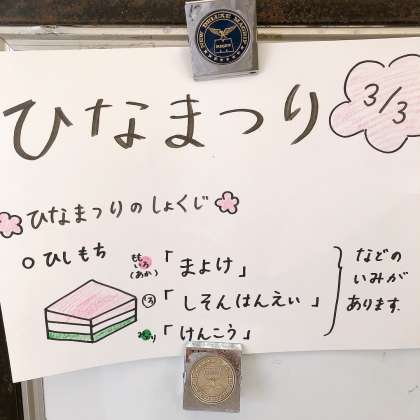 ひなまつり
3/3
ひなまつりのしょくじ
○ひしもち
ももいろ
(あか)
「まよけ」
しろ
「しそんはんえい」
みどり
「けんこう」
などの
いみが
あります.